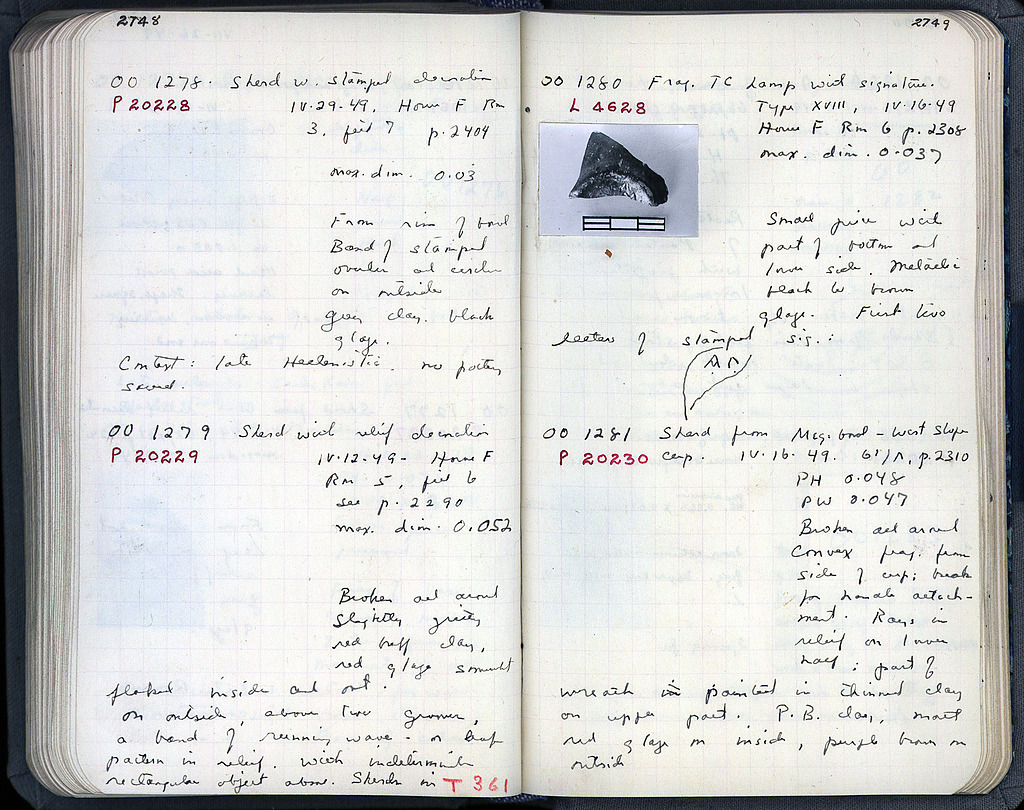 2748
OO 1278. Sherd w. stamped decoration
P 20228 IV-29-49, House F Rm
3, fill 7 p. 2404
max. dim. 0.03
From rim of bowl
Band of stamped
ovules and circles
on outside
Grey clay. black
glaze.
Context: late Hellenistic. no pottery
saved.
OO 1279 Sherd with relief decoration
P 20229 IV-12-49- House F
Rm 5, fill 6
see p. 2290
max. dim. 0.052
Broken all around
Slightly gritty
red buff clay,
red glaze somewhat
flaked inside and out.
On outside, above two grooves,
a band of running wave - or leaf
pattern in relief. With indeterminate
rectangular object above. Sherds in T 361
2749
OO 1280 Frag. TC Lamp with signature.
L 4628 Type XVIII, IV-16-49
House F. Rm 6 p. 2308
max. dim. 0.037
Small piece with
part of bottom and
lower side. Metallic
black to brown
glaze. First two
letters of stamped sig.:
ΑΠ
OO 1281 Sherd from Meg. bowl - West Slope
P 20230 cup. IV-16-49. 61/Λ, p. 2310
PH 0.048
PW 0.047
Broken all around
Convex frag. from
side of cup; break
for handle attach-
ment. Rays in
relief on lower
half; part of
wreath painted in thinned clay
on upper part. P.B. clay, matt
red glaze on inside, purple brown on
outside